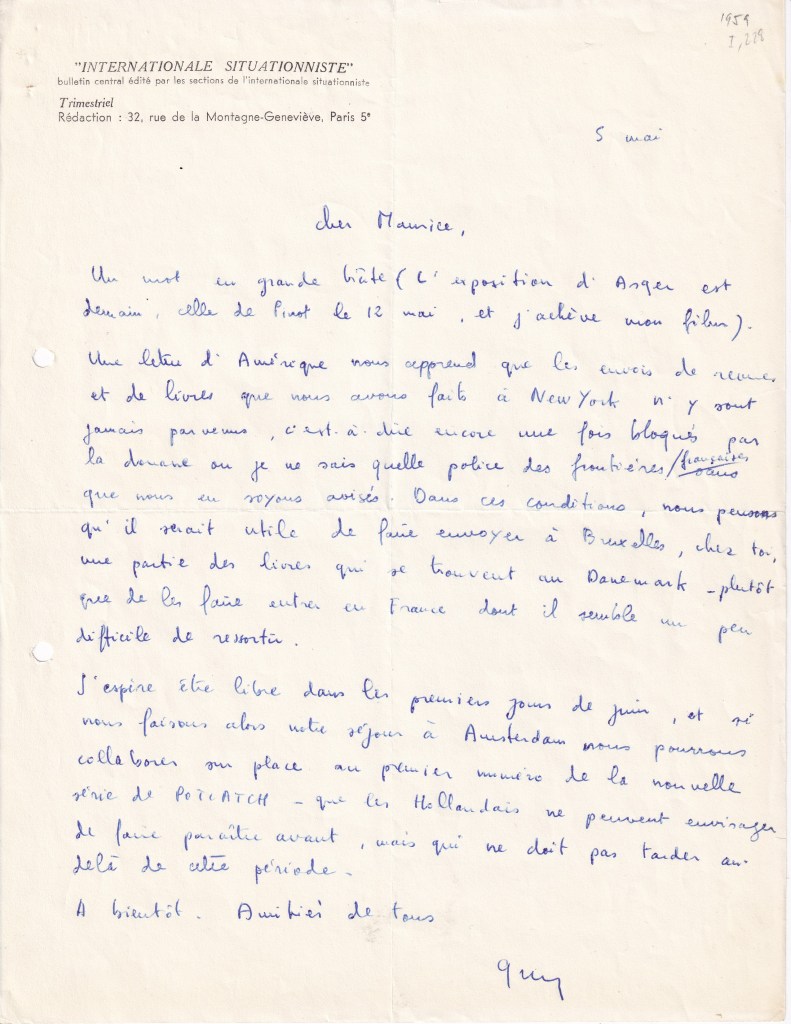 1959
I, 228
"INTERNATIONALE SITUATIONNISTE"
bulletin central édité par les sections de l'internationale situationniste
Trimestriel
Rédaction : 32, rue de la Montagne-Geneviève, Paris 5e
5 mai
cher Maurice,
Un mot en grande hâte (L'exposition d'Asger est
demain, celle de Pinot le 12 mai, et j'achève mon film).
Une lettre d'Amérique nous apprend que les envois de revues
et de livres que nous avons faits à New York n'y sont
jamais parvenus, c'est-à-dire encore une fois bloqués par
la douane ou je ne sais quelle police des frontières/françaises sans
que nous en soyons avisés. Dans ces conditions, nous pensons
qu'il serait utile de faire envoyer à Bruxelles, chez toi,
une partie des livres qui se trouvent au Danemark - plutôt
que de les faire entrer en France dont il semble un peu
difficile de ressortir.
J'espère être libre dans les premiers jours de juin, et si
nous faisons alors notre séjour à Amsterdam nous pourrons
collaborer sur place au premier numéro de la nouvelle
série de POTLATCH - que les Hollandais ne peuvent envisager
de faire paraître avant, mais qui ne doit pas tarder au-
delà de cette période.
A bientôt. Amitiés de tous
Guy